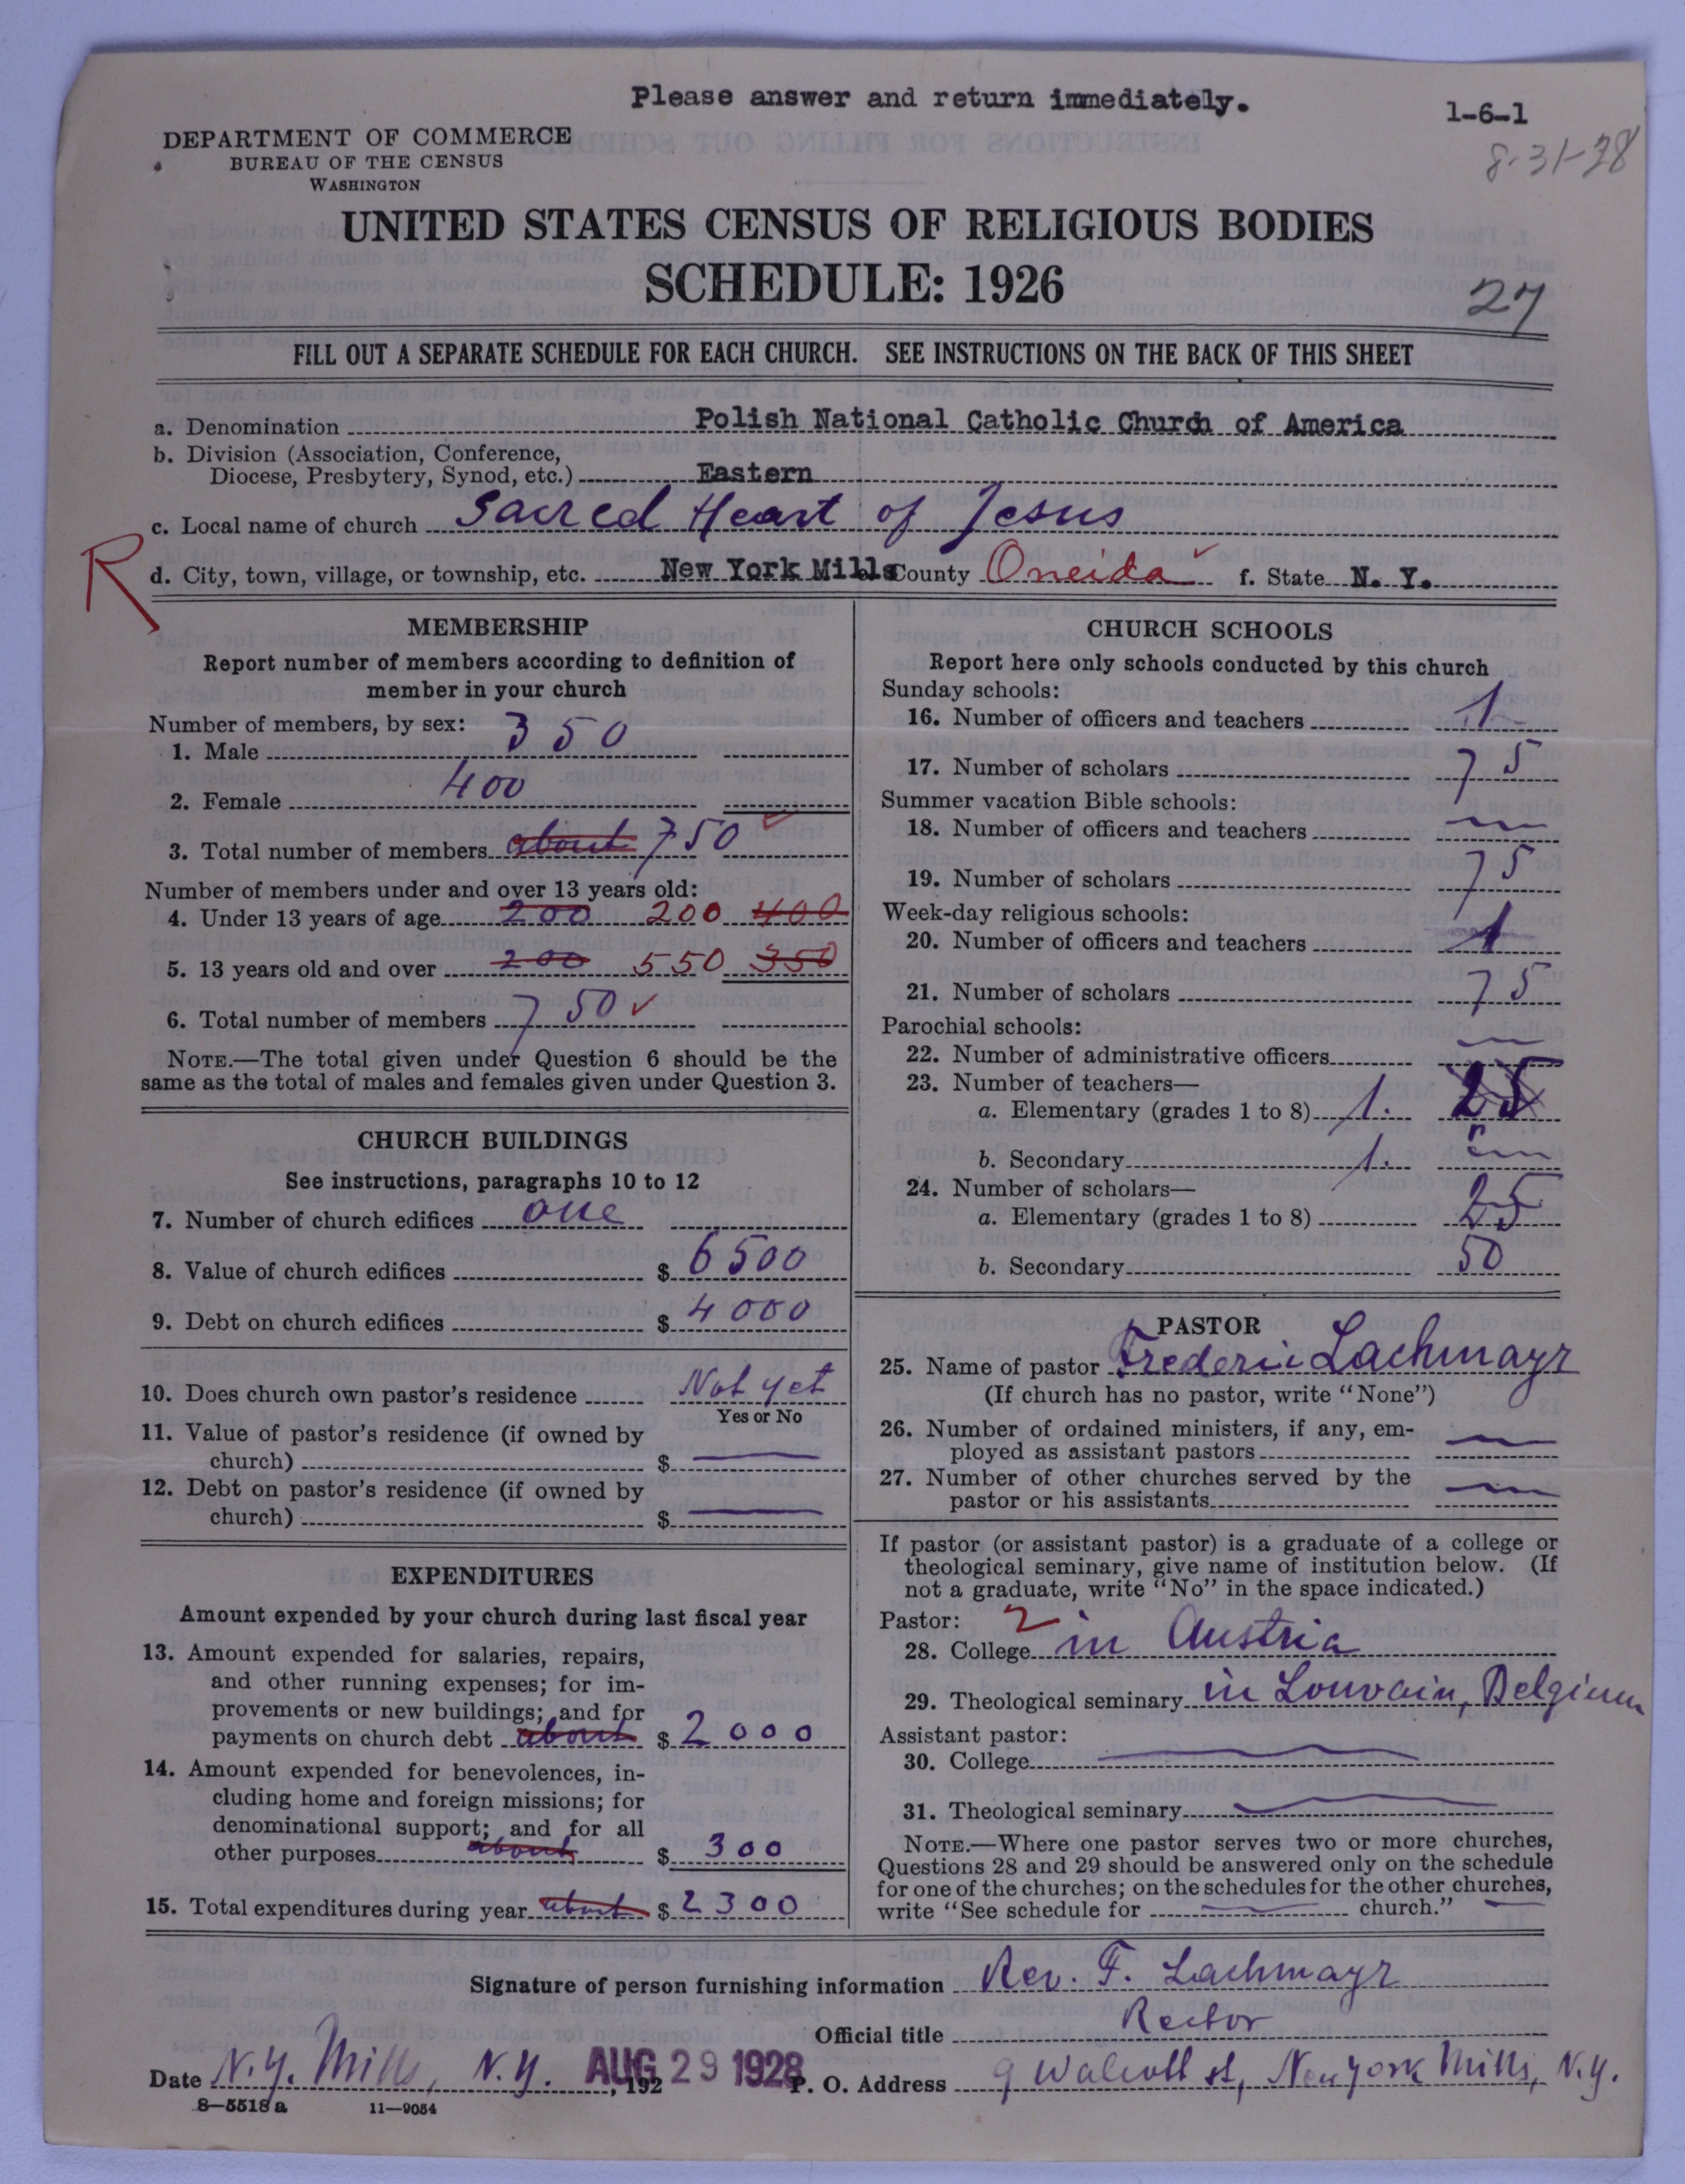 Please answer and return immediately.
1-6-1
8-31-28
DEPARTMENT OF COMMERCE
BUREAU OF THE CENSUS
WASHINGTON
UNITED STATES CENSUS OF RELIGIOUS BODIES
SCHEDULE: 1926
27
FILL OUT A SEPARATE SCHEDULE FOR EACH CHURCH. SEE INSTRUCTIONS ON THE BACK OF THIS SHEET
a. Denomination Polish National Catholic Church of America
b. Division (Association, Conference,
Diocese, Presbytery, Synod, etc.) Eastern
c. Local name of church Sacred Heart of Jesus
R
d. City, town, village, or township, etc. New York Mills County Oneida f. State N. Y.
MEMBERSHIP
Report number of members according to definition of
member in your church
Number of members, by sex:
1. Male 350
2. Female 400
3. Total number of members about 750
Number of members under and over 13 years old:
4. Under 13 years of age 200 200 400
5. 13 years old and over 200 550 350
6. Total number of members 750
NOTE.—The total given under Question 6 should be the
same as the total of males and females given under Question 3.
CHURCH BUILDINGS
See instructions, paragraphs 10 to 12
7. Number of church edifices one
8. Value of church edifices $ 6500
9. Debt on church edifices $ 4000
10. Does church own pastor's residence Not yet
Yes or No
11. Value of pastor's residence (if owned by
church) $
12. Debt on pastor's residence (if owned by
church) $
EXPENDITURES
Amount expended by your church during last fiscal year
13. Amount expended for salaries, repairs,
and other running expenses; for im-
provements or new buildings; and for
payments on church debt about $ 2000
14. Amount expended for benevolences, in-
cluding home and foreign missions; for
denominational support; and for all
other purposes about $ 300
15. Total expenditures during year about $ 2300
CHURCH SCHOOLS
Report here only schools conducted by this church
Sunday schools:
16. Number of officers and teachers 1
17. Number of scholars 75
Summer vacation Bible schools:
18. Number of officers and teachers
19. Number of scholars 75
Week-day religious schools:
20. Number of officers and teachers 1
21. Number of scholars 75
Parochial schools:
22. Number of administrative officers
23. Number of teachers—
a. Elementary (grades 1 to 8) 1. 25
b. Secondary 1.
24. Number of scholars—
a. Elementary (grades 1 to 8) 25
b. Secondary 50
PASTOR
25. Name of pastor Frederic Lachmayr
(If church has no pastor, write "None")
26. Number of ordained ministers, if any, em-
ployed as assistant pastors
27. Number of other churches served by the
pastor or his assistants
If pastor (or assistant pastor) is a graduate of a college or
theological seminary, give name of institution below. (If
not a graduate, write "No" in the space indicated.)
Pastor: 2
28. College in Austria
29. Theological seminary in Louvain, Belgium
Assistant pastor:
30. College
31. Theological seminary
NOTE.—Where one pastor serves two or more churches,
Questions 28 and 29 should be answered only on the schedule
for one of the churches; on the schedules for the other churches,
write "See schedule for church."
Signature of person furnishing information Rev. F. Lachmayr
Official title Rector
Date N.Y. Mills, N.Y. AUG 29 1928, 192 P. O. Address 9 Walcott st, New York Mills, N.Y.
8—5518 a 11—9054